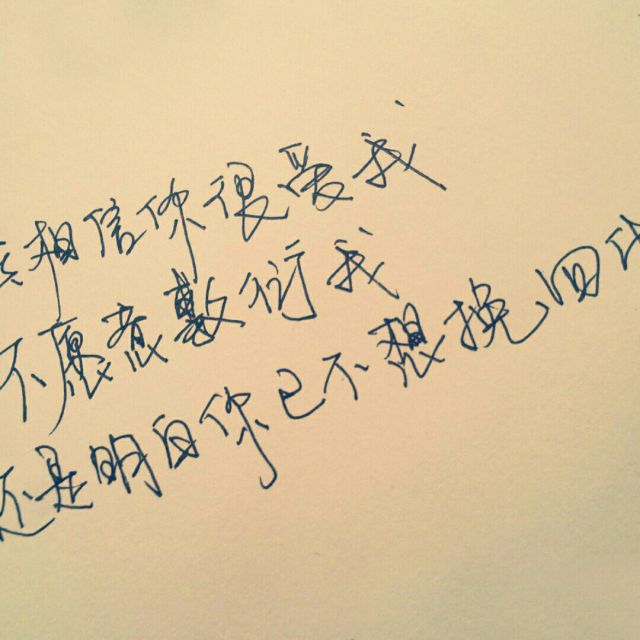 相信你很爱我
不愿意敷衍我
还是明白你已不想挽回